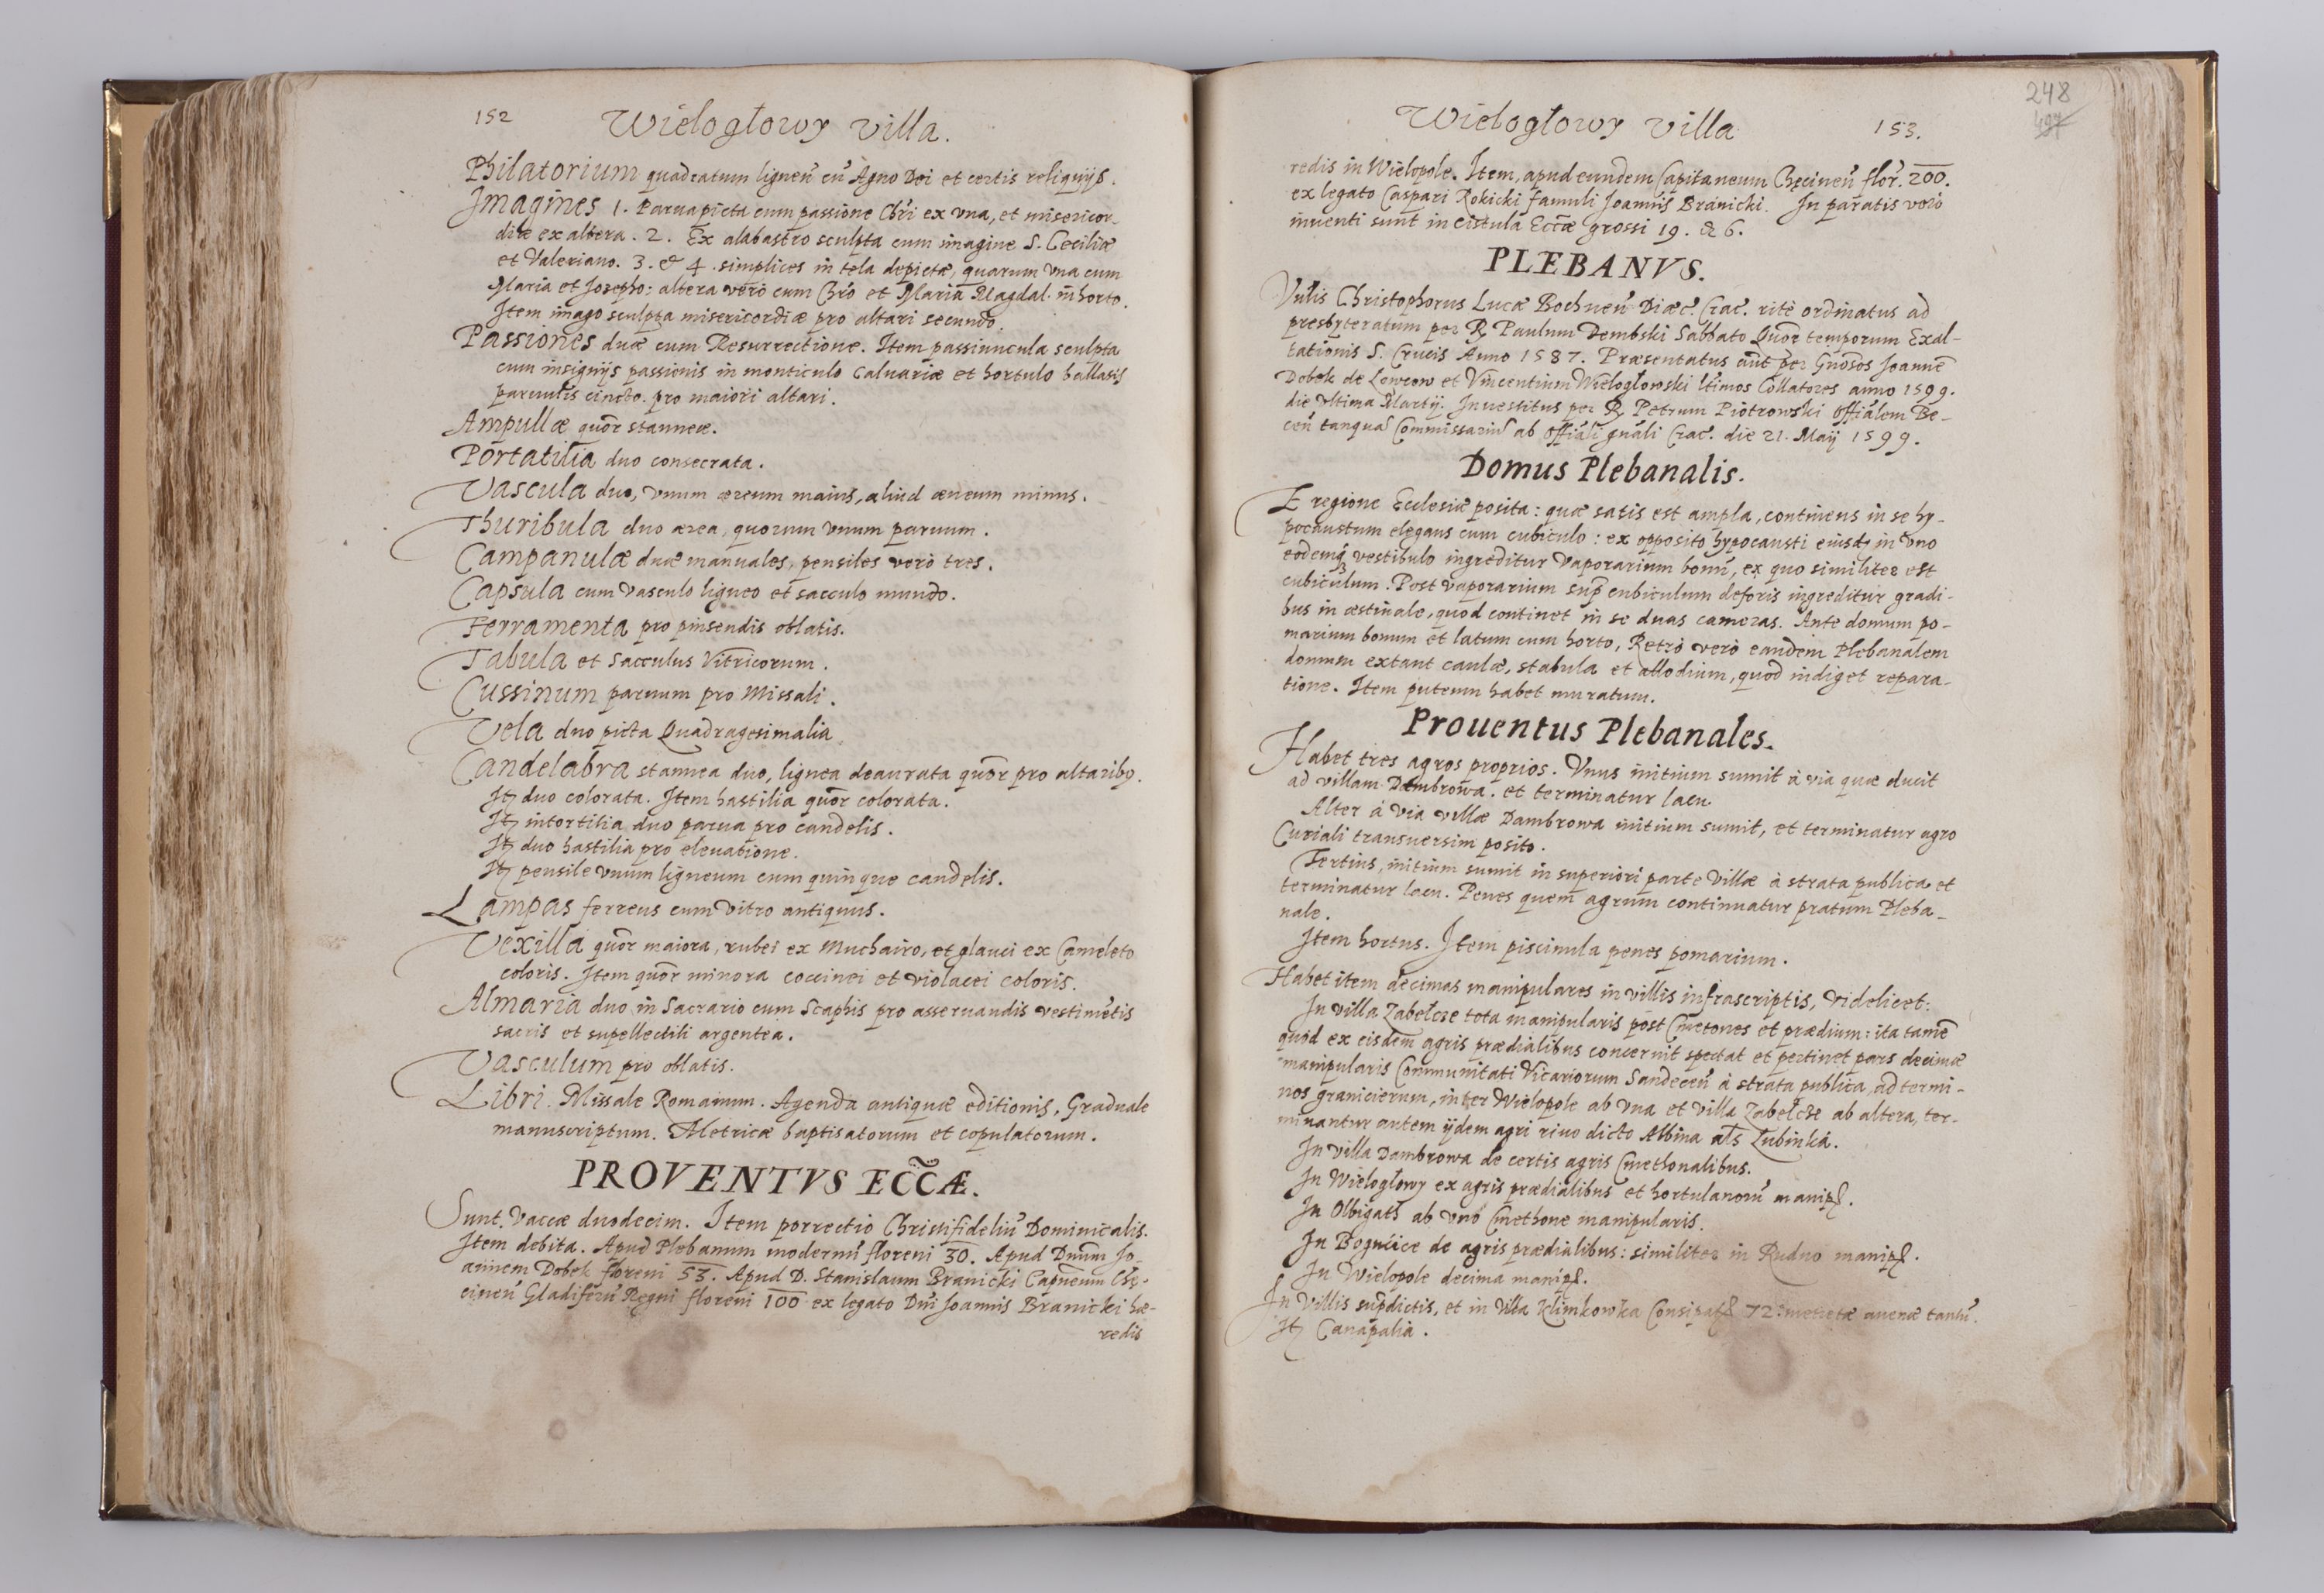 152 Wielogłowy Villa.
Philatorium quadratum ligneū cū Agno Dei et certis reliquijs.
Imagines 1. Parua picta cum passione Chri ex vna, et misericor-
diæ ex altera. 2. Ex alabastro sculpta cum imagine S. Ceciliæ
et Valeriano. 3. & 4. simplices in tela depictæ, quarum vna cum
Maria et Josepho: altera verò cum Chrō et Maria Magdal. in horto.
Item imago sculpta misericordiæ pro altari secundo.
Passiones duæ cum Resurrectione. Item passiuncula sculpta
cum insignijs passionis in monticulo Caluariæ et hortulo ballasijs
paruulis cincto. pro maiori altari.
Ampullæ quōr stanneæ.
Portatilia duo consecrata.
Vascula duo, vnum æreum maius, aliud æneum minus.
Thuribula duo ærea, quorum vnum paruum.
Campanulæ duæ manuales, pensiles verò tres.
Capsula cum vasculo ligneo et sacculo mundo.
Ferramenta pro pinsendis oblatis.
Tabula et Sacculus Vitricorum.
Cussinum paruum pro Missali.
Vela duo picta Quadragesimalia
Candelabra stannea duo, lignea deaurata quōr pro altaribꝯ.
Itꝫ duo colorata. Item hastilia quōr colorata.
Itꝫ intortitia duo parua pro candelis.
Itꝫ duo hastilia pro eleuatione.
Itꝫ pensile vnum ligneum cum quinque candelis.
Lampas ferreus cum vitro antiquus.
Vexilla quōr maiora, rubei ex Muchairo, et glauci ex Cameleto
coloris. Item quōr minora coccinei et violacei coloris.
Almaria duo in Sacrario cum Scaphis pro asseruandis vestimētis
sacris et supellectili argentea.
Vasculum pro oblatis.
Libri. Missale Romanum. Agenda antiquæ editionis, Graduale
manuscriptum. Metricæ baptisatorum et copulatorum.
PROVENTVS ECC̃Æ.
Sunt. Vaccæ duodecim. Item porrectio Christifideliū Dominicalis.
Item debita. Apud Plebanum modernū floreni 30. Apud Dnūm Jo-
annem Dobek floreni 53. Apud D. Stanislaum Branicki Capneum Chę-
cineń Gladiferū Regni floreni 100 ex legato Dni Joannis Branicki hæ-
redis
Wielogłowy Villa 153.
248
497
redis in Wielopole. Item, apud eundem Capitaneum Chęcineń flor. 200.
ex legato Caspari Rokicki famuli Joannis Branicki. In paratis verò
inuenti sunt in cistula Eccæ grossi 19. & 6.
PLEBANVS.
Vnlis Christophorus Lucæ Bochneń Diæc. Crac. ritè ordinatus ad
presbyteratum per R. Paulum Dembski Sabbato Quōr temporum Exal-
tationis S. Crucis Anno 1587. Præsentatus aūt per Gnosos Joannē
Dobek de Lowcow et Vincentium Wielogłowski ltimos Collatores anno 1599.
die vltima Martij. Inuestitus per R. Petrum Piotrowski Offialem Be-
ceń tanquā Commissariū ab Offiali gnāli Crac. die 21. Maij 1599.
Domus Plebanalis.
E regione Ecclesiæ posita: quæ satis est ampla, continens in se hy-
pocaustum elegans cum cubiculo: ex opposito hypocausti eiusdē in vno
eodemqꝫ vestibulo ingreditur vaporarium bonū, ex quo similiter est
cubiculum. Post vaporarium supr̄ cubiculum deforis ingreditur gradi-
bus in æstiuale, quod continet in se duas cameras. Ante domum po-
marium bonum et latum cum horto, Retrò verò eandem Plebanalem
domum extant caulæ, stabula et allodium, quod indiget repara-
tione. Item puteum habet muratum.
Prouentus Plebanales.
Habet tres agros proprios. Vnus initium sumit à via quæ ducit
ad villam Dambrowa. et terminatur lacu.
Alter à via villæ Dambrowa initium sumit, et terminatur agro
Curiali transuersim posito.
Tertius, initium sumit in superiori parte Villæ à strata publica et
terminatur lacu. Penes quem agrum continuatur pratum Pleba-
nale.
Item hortus. Item piscinula penes pomarium.
Habet item decimas manipulares in villis infrascriptis, videlicet:
In villa Zabełcze tota manipularis post Cmetones et prædium: ita tamē
quod ex eisdem agris prædialibus concernit spectat et pertinet pars decimæ
manipularis Communitati Vicariorum Sandeceń à strata publica, ad termi-
nos granicierum, inter Wielopole ab vna et villa Zabełcze ab altera, ter-
minantur autem ijdem agri riuo dicto Albina als Łubinka.
In villa Dambrowa de certis agris Cmethonalibus.
In Wielogłowy ex agris prædialibus et hortulanorū manipł.
In Olbigats ab vno Cmethone manipularis.
In Bogućice de agris prædialibus: similiter in Rudno manipł.
In Wielopole decima manipł.
In villis suprdictis, et in villa Klimkowka 72 metretæ auenæ tantū.
Itꝫ Canapalia.